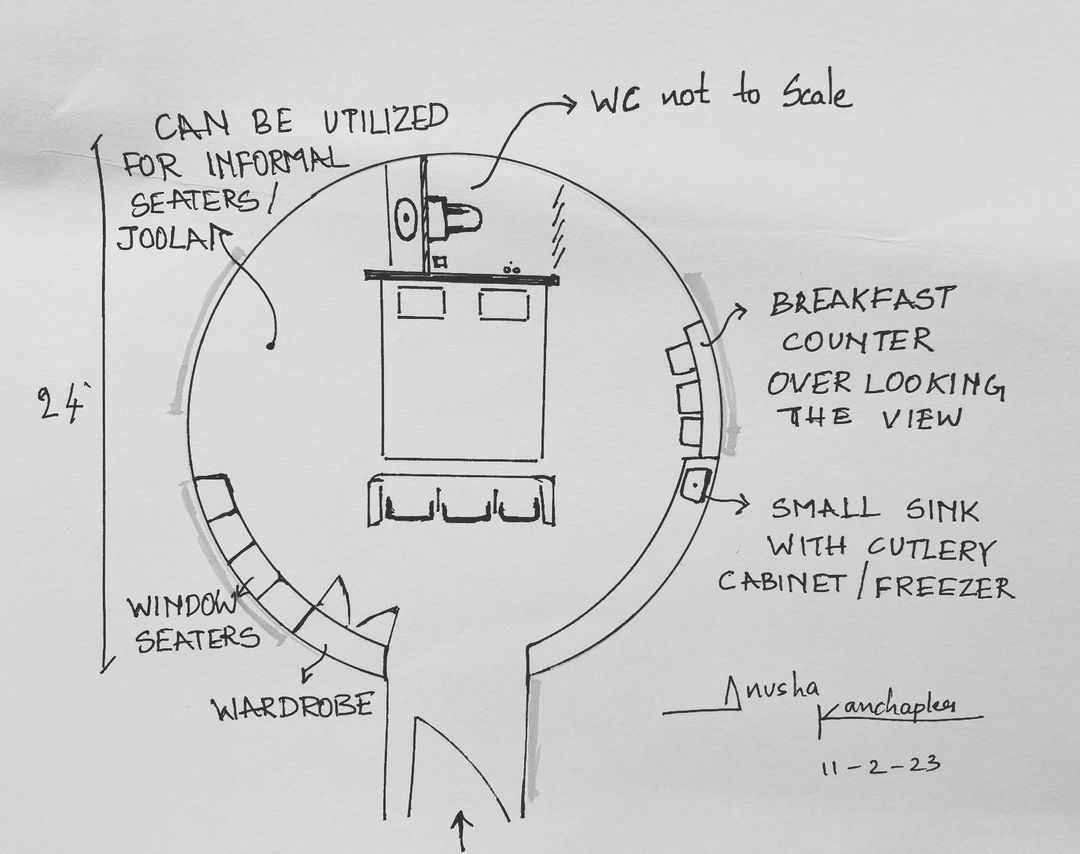 WC not to Scale
CAN BE UTILIZED
FOR INFORMAL
SEATERS/
JOOLA
24'
BREAKFAST
COUNTER
OVER LOOKING
THE VIEW
SMALL SINK
WITH CUTLERY
CABINET/FREEZER
WINDOW
SEATERS
WARDROBE
Anusha
11-2-23